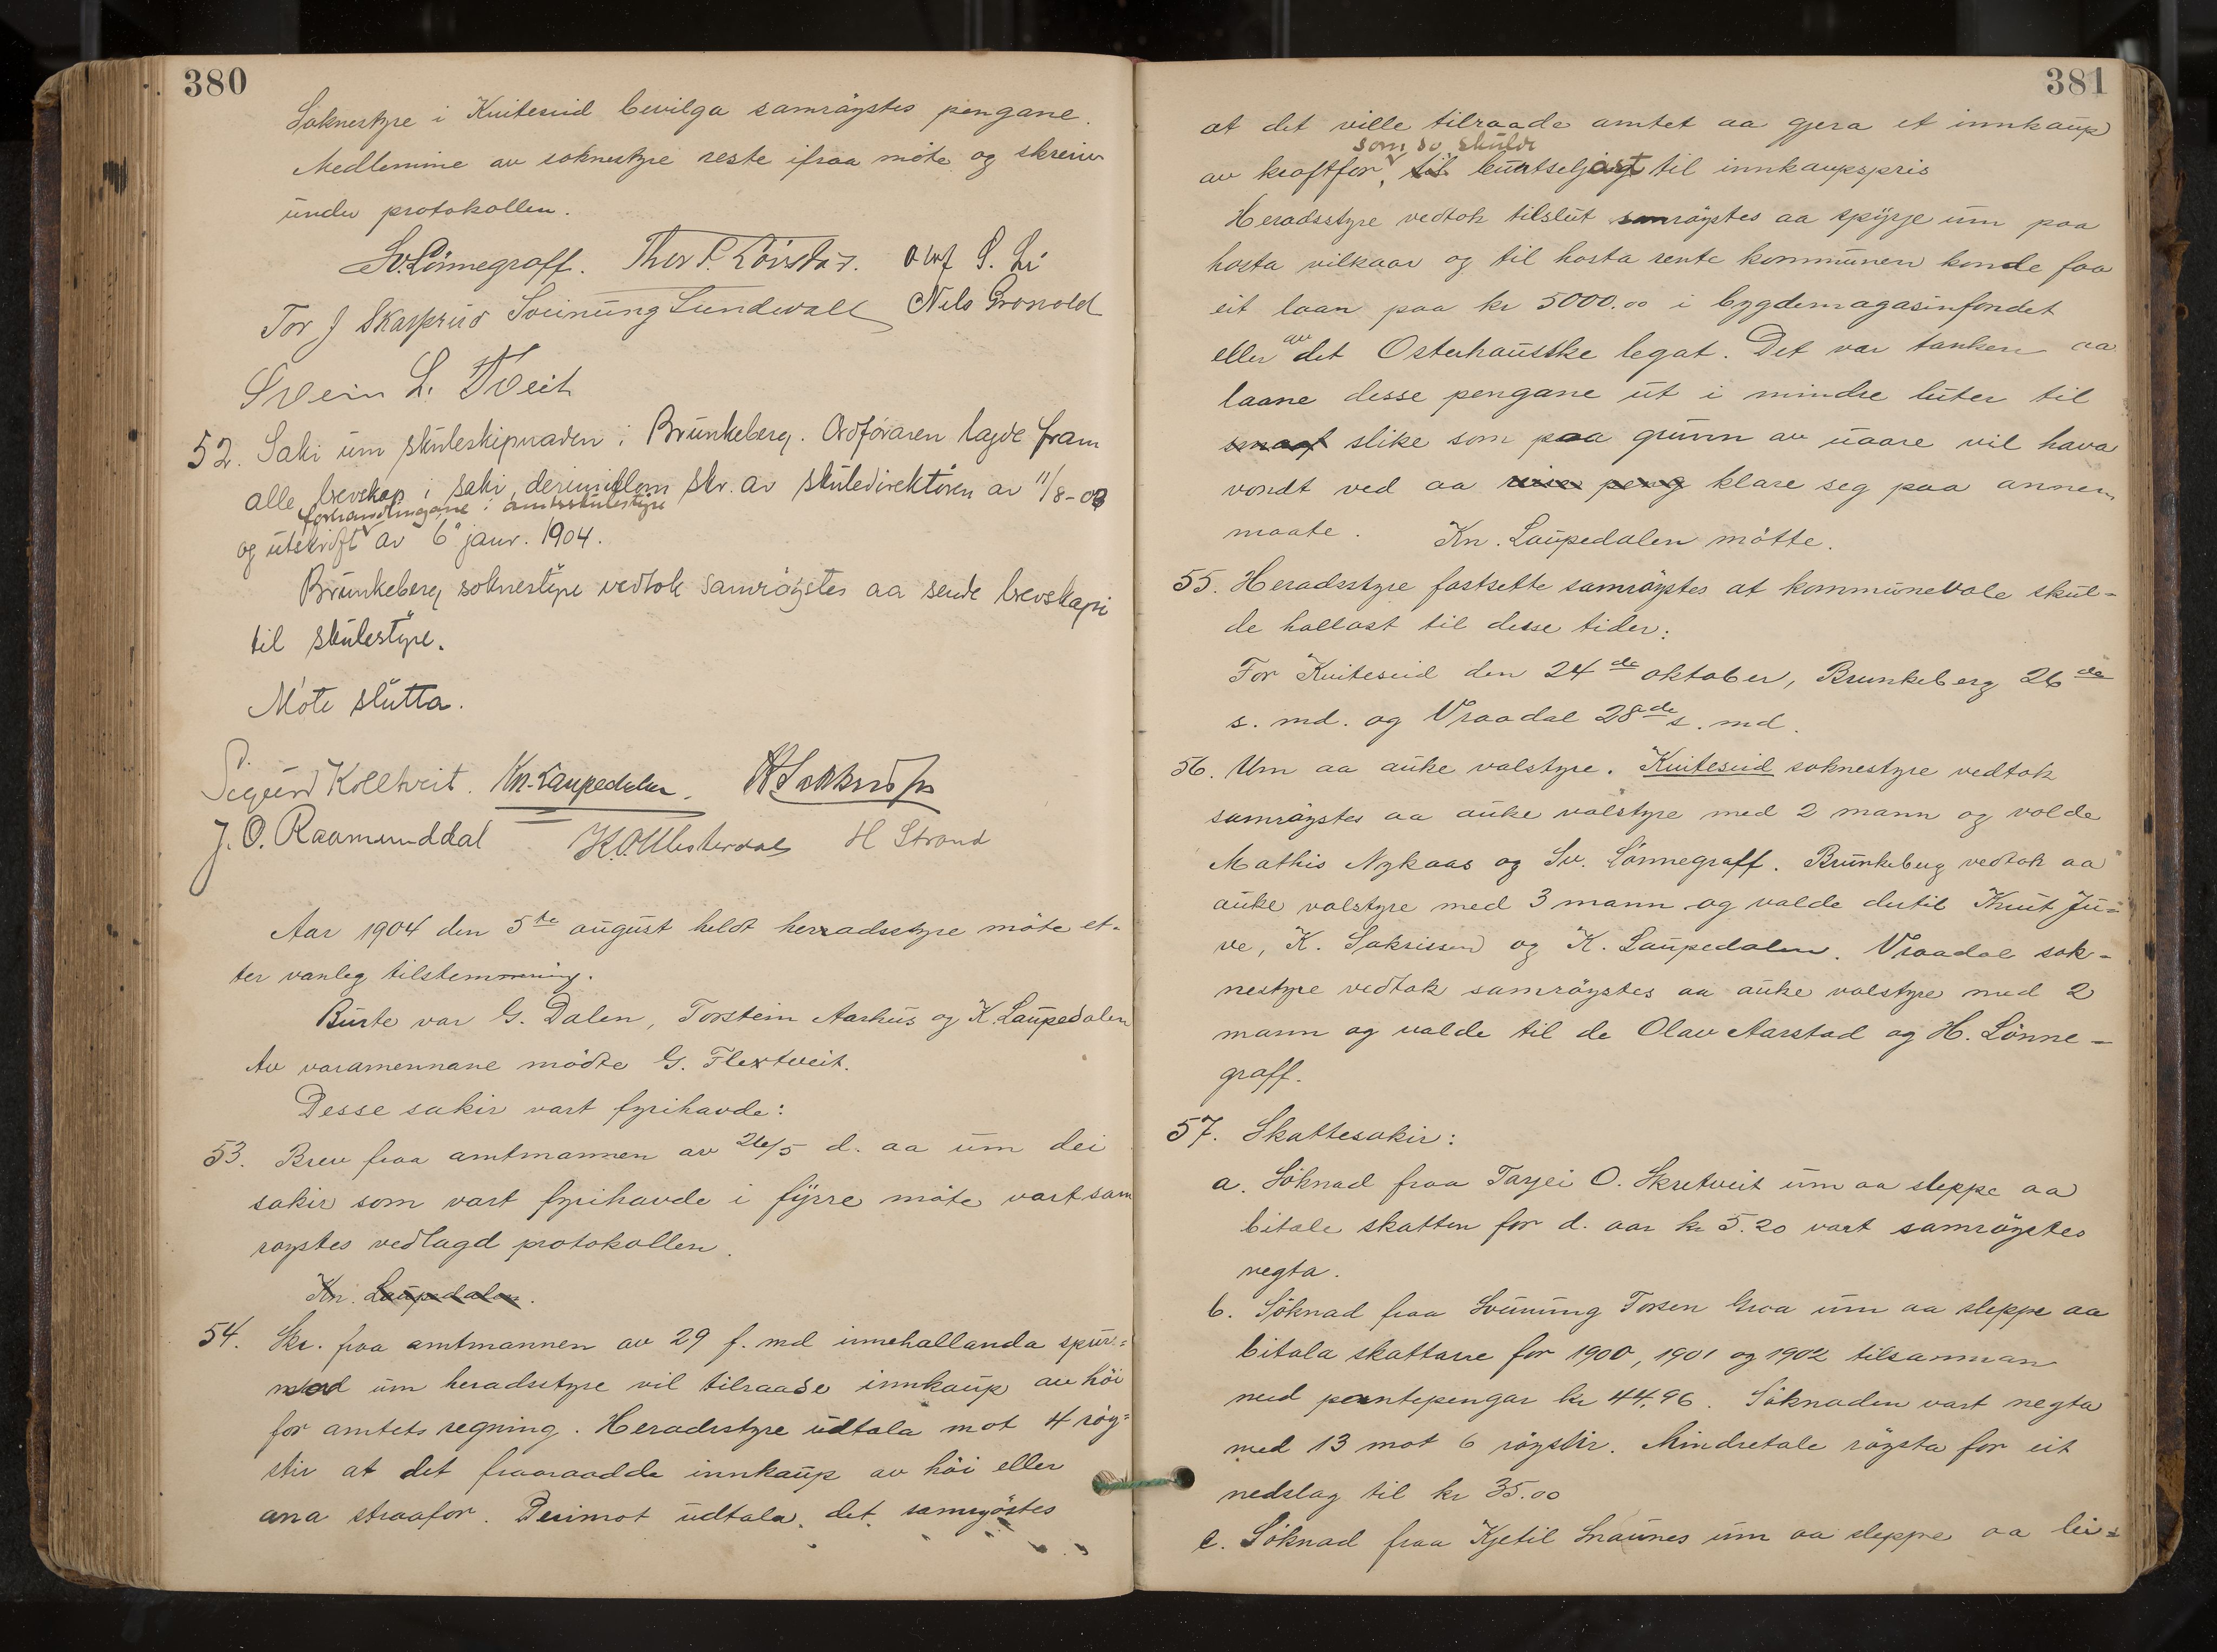 380
Soknestyre i Kviteseid bevilga samröystes pengane.
Medlemine av soknestyre reste ifraa möte og skreiv
under protokollen.
Sv. Lönnegraff. Thor P. Olav S. Li
Tor J Skasprud Sveinung Sundevall Nils Gronold
Svein L. Tveit
52. Saki um skuleskipnaden i Brunkeberg. Ordföraren lagde fram
alle brevskap i saki, derimillom skr. av skuledirektören av 11/8-03
forhandlingane i amtsskulestyre
og utskrift av 6 janr. 1904.
Brunkeberg soknestyre vedtok samröystes aa sende brevskapi
til skulestyre.
Möte slutta.
Sigurd Kolltveit. Kn. Laupedalen.
J. O. Raamunddal H Strand
Aar 1904 den 5te august heldt herradsstyre möte et-
ter vanleg tilstemning.
Burte var G. Dalen, Torstein Aarhus og K. Laupedalen
Av varamennane mödte G. Flextveit.
Desse sakir vart fyrihavde:
53. Brev fraa amtmannen av 26/5 d. aa um dei
sakir som vart fyrihavde i fyrre möte vart sam
röystes vedlagd protokollen.
Kn. Laupedalen.
54. Skr. fraa amtmannen av 29 f. md innehallanda spurs=
maal um heradsstyre vil tilraade innkaup av höi
for amtets regning. Heradsstyre udtala mot 4 röy=
stir at det fraaraadde innkaup av höi eller
ana straafor. Derimot udtala det samröystes
381
at det ville tilraade amtet aa gjera et innkaup
som so skulde
av kraftfor, til burtseljast til innkaupspris
Heradsstyre vedtok tilslut samröystes aa spyrje um paa
kosta vilkaar og til kosta rente kommunen konde faa
eit laan paa kr 5000.00 i bygdemagasinfondet
av
eller det Osterhausske legat. Det var tanken aa
laane desse pengane ut i mindre luter til
smaaf slike som paa grunn av uaare vil hava
vondt ved aa peng klare seg paa annen
maate. Kn. Laupedalen mötte.
55. Heradsstyre fastsette samröystes at kommunevale skul-
de hallast til desse tider:
For Kviteseid den 24de oktober, Brunkeberg 26de
s. md. og Vraadal 28de s. md.
56. Um aa auke valstyre. Kviteseid soknestyre vedtok
samröystes aa auke valstyre med 2 mann og valde
Mathis Nykaas og Sv. Lönnegraff. Brunkeberg vedtok aa
auke valstyre med 3 mann og valde dertil Knut Ju-
ve, K. Sakrissen og K. Laupedalen. Vraadal sok-
nestyre vedtok samröystes aa auke valstyre med 2
mann og valde til de Olav Aarstad og H. Lönne-
graff.
57. Skattesakir:
a. Söknad fraa Tarjei O. Skretveit um aa sleppe aa
bitale skatten for d. aar kr 5.20 vart samröystes
negta.
b. Söknad fraa Sveinung Torsen Groa um aa sleppe aa
bitala skattane for 1900, 1901 og 1902 tilsamman
med pantepengar kr 44.96. Söknaden vart negta
med 13 mot 6 röystir. Mindretale röysta for eit
nedslag til kr 35.00
c. Söknad fraa Kjetil Snaunes um aa sleppe aa bi=